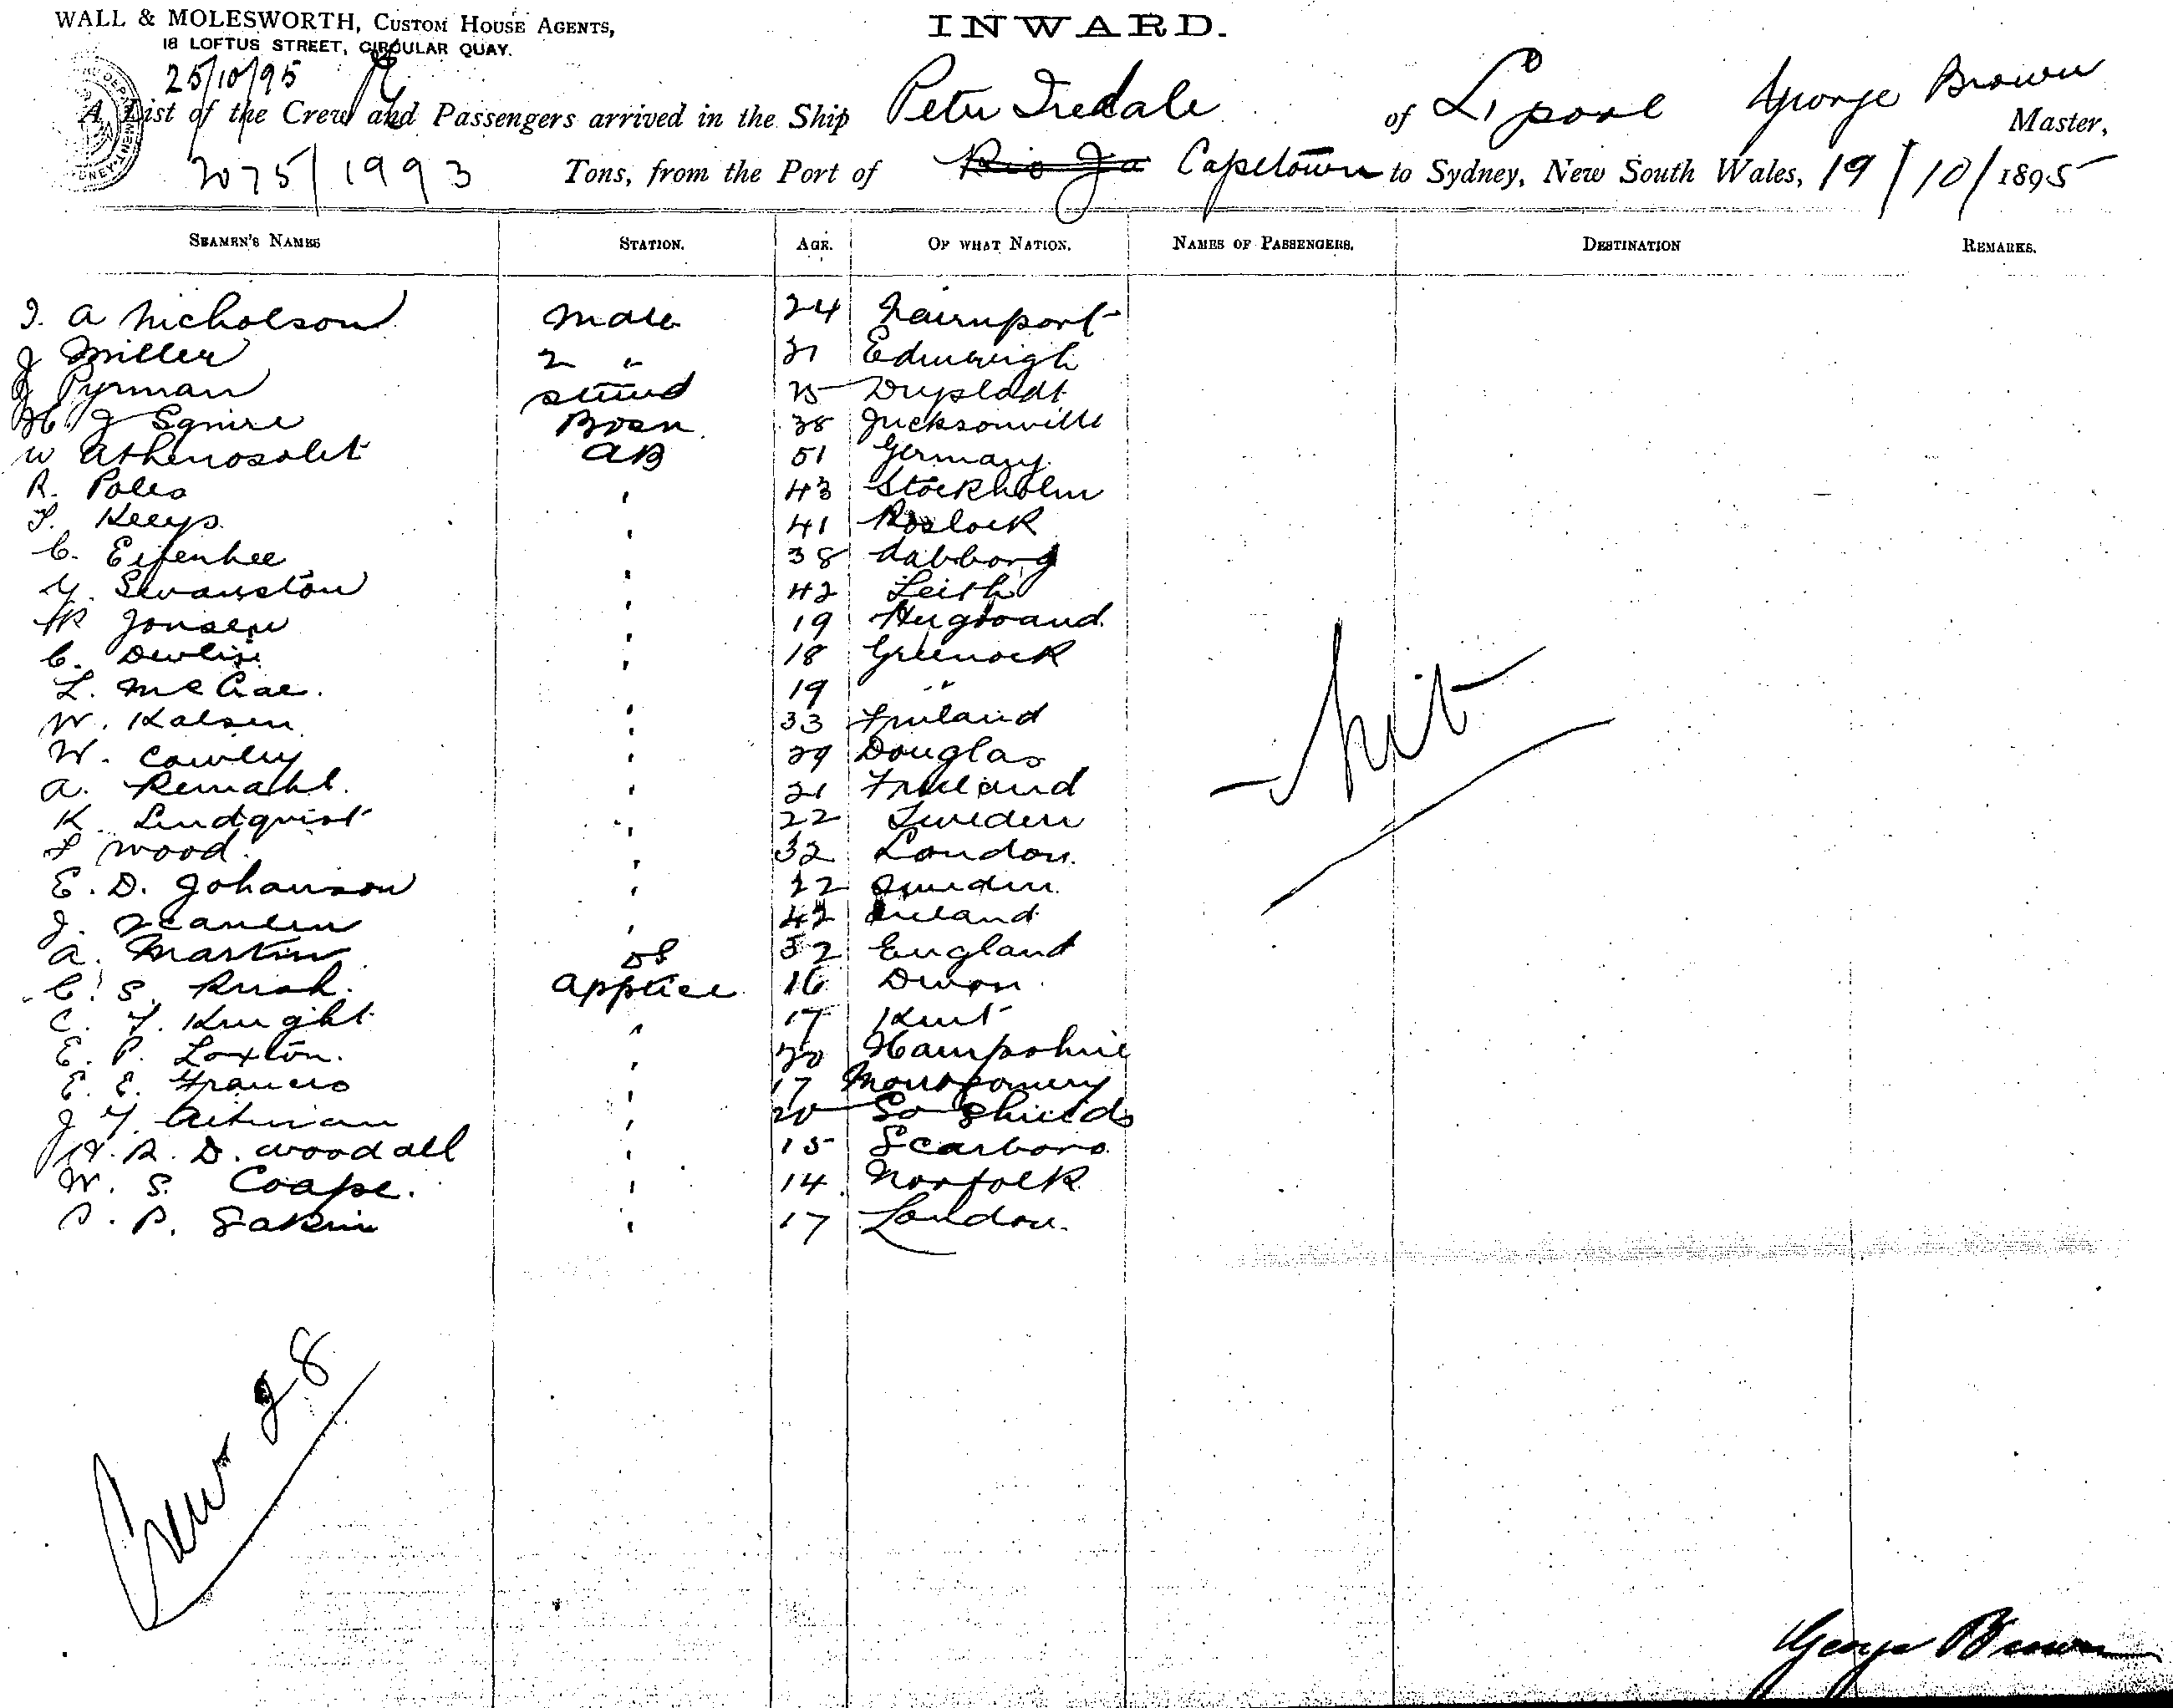 WALL & MOLESWORTH, CUSTOM HOUSE AGENTS,
18 LOFTUS STREET, CIRCULAR QUAY.
INWARD.
25/10/95
A List of the Crew and Passengers arrived in the Ship Peter Iredale of L'pool George Brown Master,
2075/1993 Tons, from the Port of Rio Ja Capetown to Sydney, New South Wales, 19/10/1895
SEAMEN'S NAMES STATION. AGE. OF WHAT NATION. NAMES OF PASSENGERS. DESTINATION REMARKS.
J. A Nicholson Mate 24
J Miller 2 " 31 Edinburgh
J Pyrman Stewd 25
H J Squire Bosn 38 Jacksonville
W AB 51 Germany
R. Poles ' 43 Stockholm
F. Keeys ' 41 Rostock
C. ' 38 Aabborg
Y. Swanston ' 42 Leith
Jonsen ' 19
C. Devlin ' 18 Greenock
L. McCrae. ' 19 "
W. Kalsen ' 33 Finland
W. Cowley ' 29 Douglas
A. ' 21 Finland
K. Lindqvist ' 22 Sweden
F Wood. ' 32 London.
E. D. Johanson ' 22 Sweden.
J. Scanlen ' 42 Ireland
A. Martin OS 32 England
C. S. Rush. Apptice 16 Devon.
C. F. Knight ' 17 Kent
E. P. Loxton. ' 20 Hampshire
E. E. Francis ' 17 Montgomery
J Y. Aitman ' 20 So Shields
H. R. D. Woodall ' 15 Scarboro.
W. S. Coape. ' 14 Norfolk
P. Sakrin ' 17 London.
Nil
Crew 28
George Brown